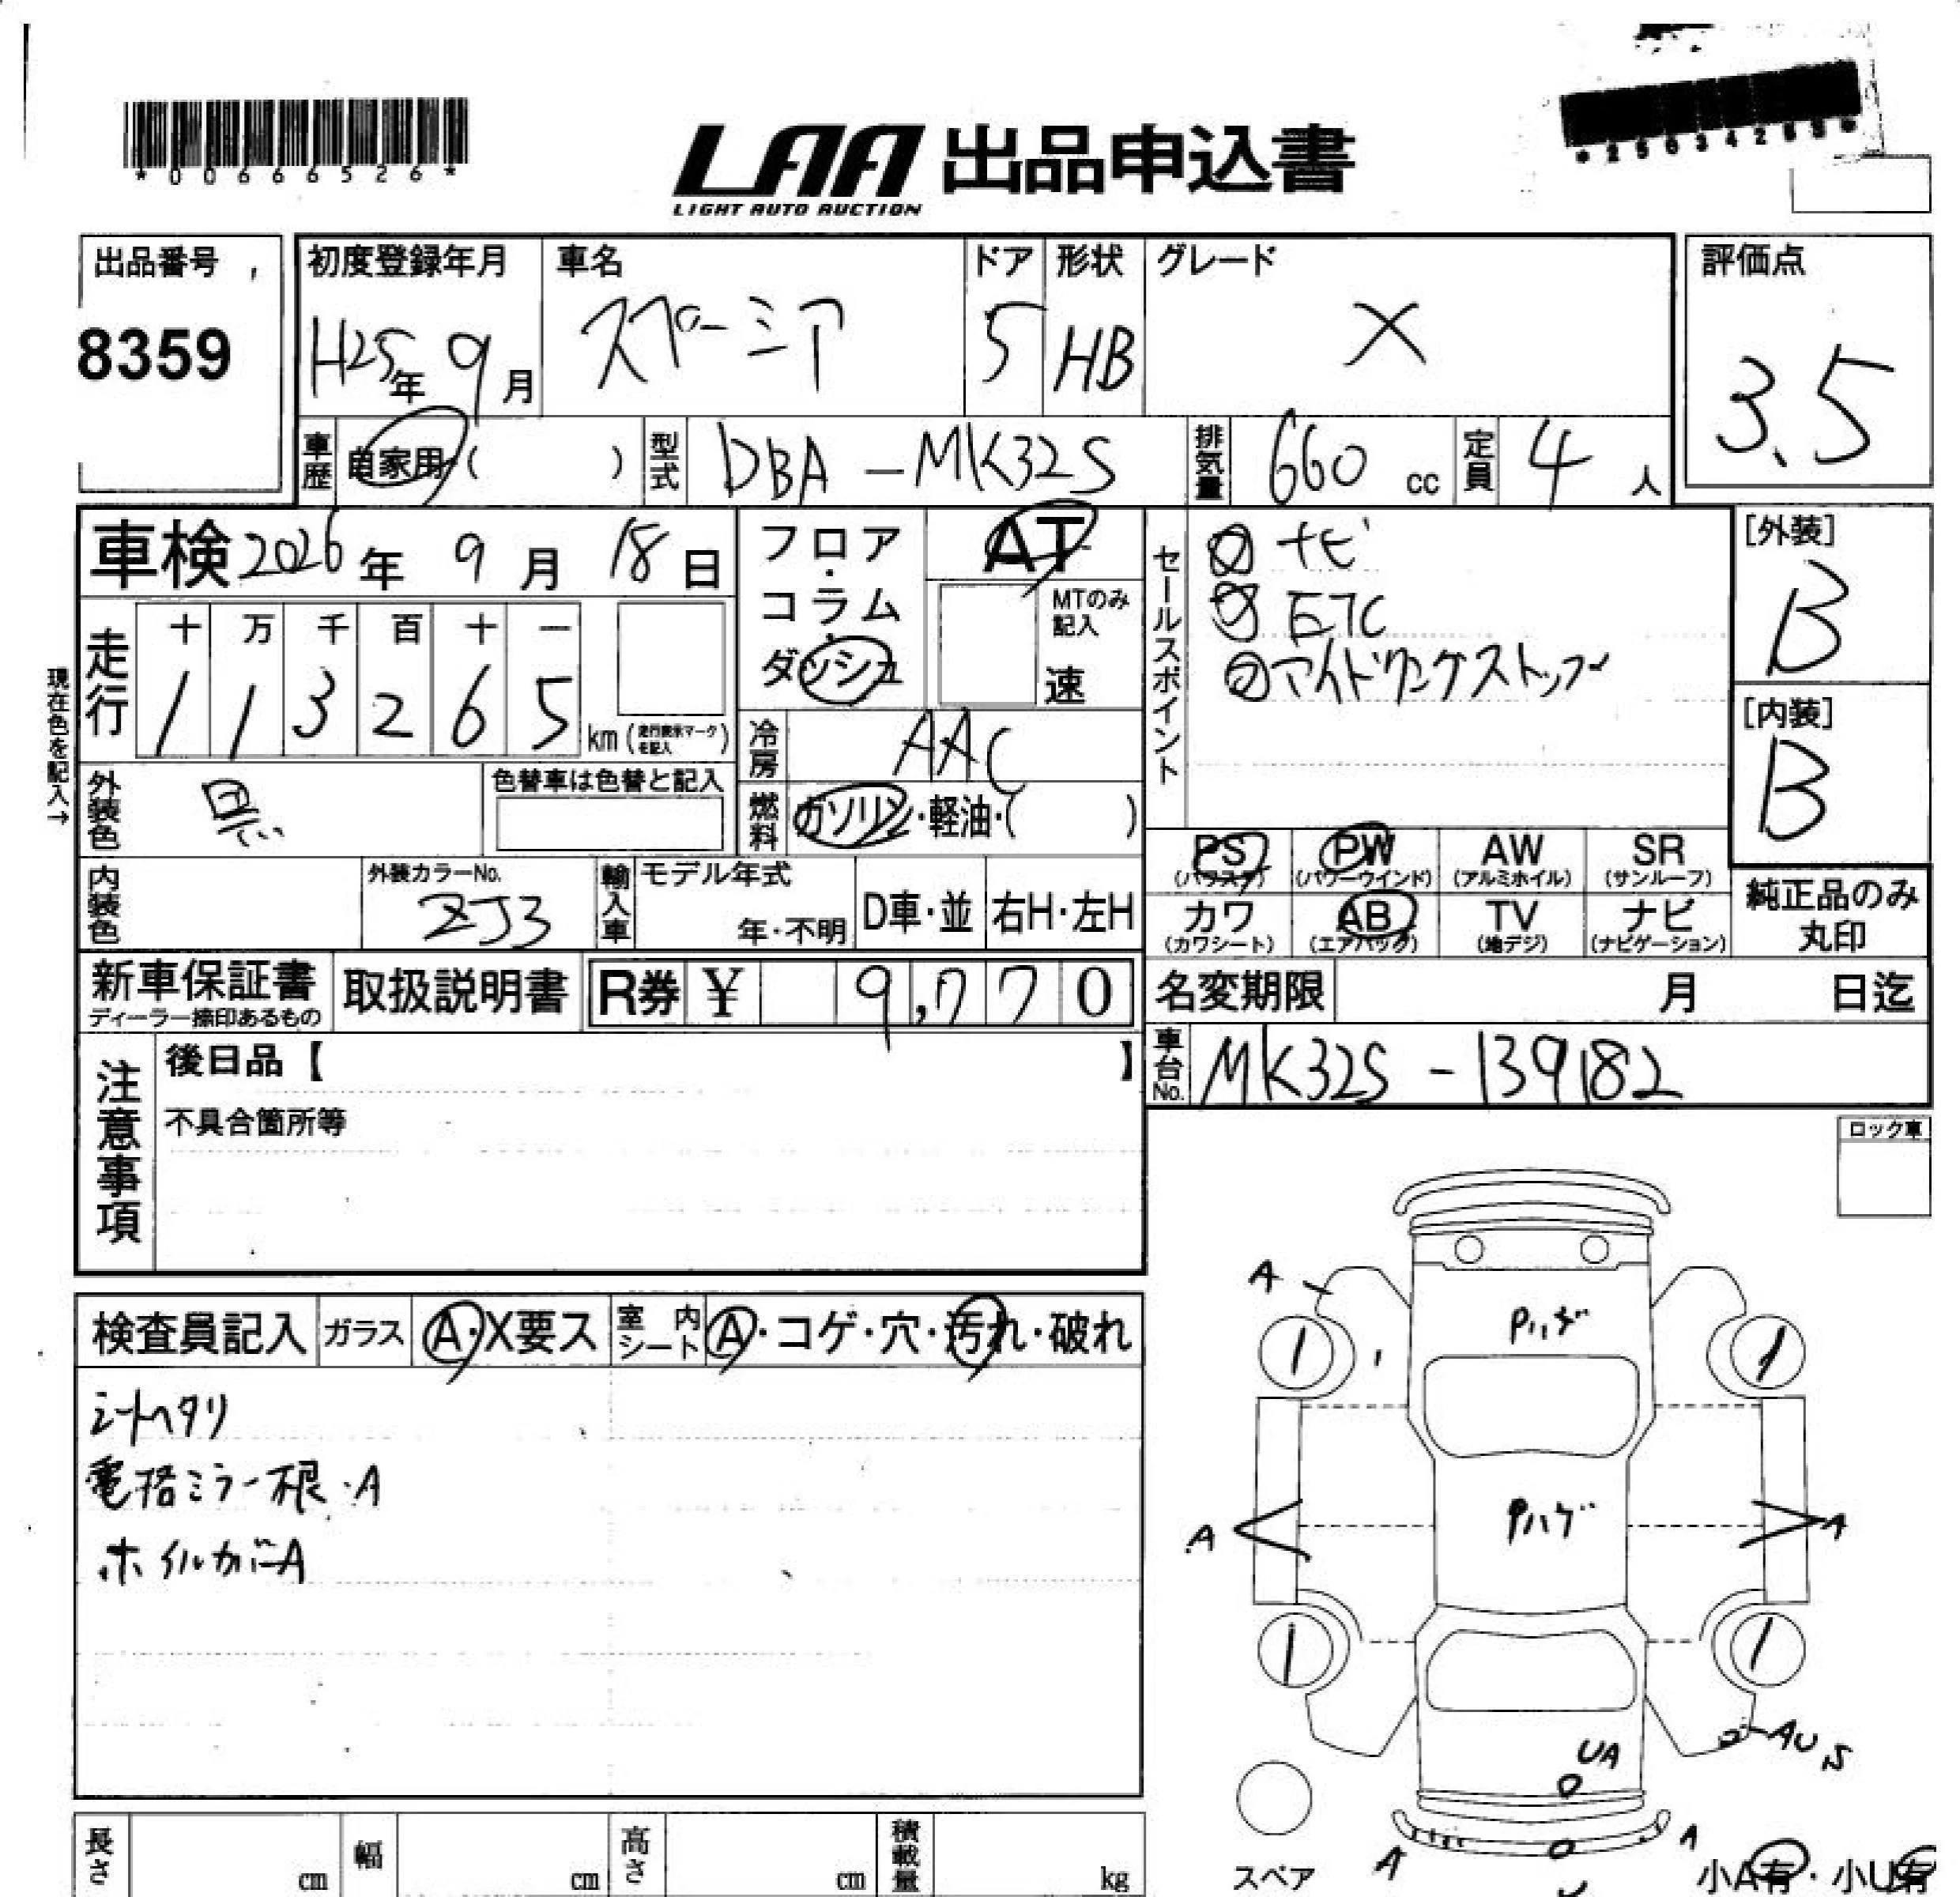 *00666526*
LAA 出品申込書
LIGHT AUTO AUCTION
出品番号
8359
初度登録年月
H25年 9月
車名
スペーシア
ドア
5
形状
HB
グレード
X
評価点
3.5
車歴
自家用( )
型式
DBA-MK32S
排気量
660 cc
定員
4 人
車検 2026年 9月 18日
現在色を記入→
走行
十 万 千 百 十 一
1 1 3 2 6 5
km (走行表示マークを記入)
フロア・コラム・ダッシュ
AT
MTのみ記入
速
冷房
AAC
燃料
ガソリン・軽油・( )
外装色
黒
色替車は色替と記入
内装色
外装カラーNo.
ZJ3
輸入車
モデル年式
年・不明
D車・並
右H・左H
セールスポイント
ナビ
ETC
アイドリングストップ
[外装]
B
[内装]
B
PS (パワステ)
PW (パワーウインド)
AW (アルミホイル)
SR (サンルーフ)
カワ (カワシート)
AB (エアバック)
TV (地デジ)
ナビ (ナビゲーション)
純正品のみ丸印
新車保証書
ディーラー捺印あるもの
取扱説明書
R券 ¥ 9,770
名変期限 月 日迄
車台No.
MK32S-139182
注意事項
後日品【 】
不具合箇所等
ロック車
検査員記入
ガラス
A・X要ス
室内シート
A・コゲ・穴・汚れ・破れ
シートヘタリ
電格ミラー根・A
ホイルカバーA
A
Pハゲ
Pハゲ
A
A
AUS
UA
A
A
スペア
小A有・小U有
長さ cm
幅 cm
高さ cm
積載量 kg